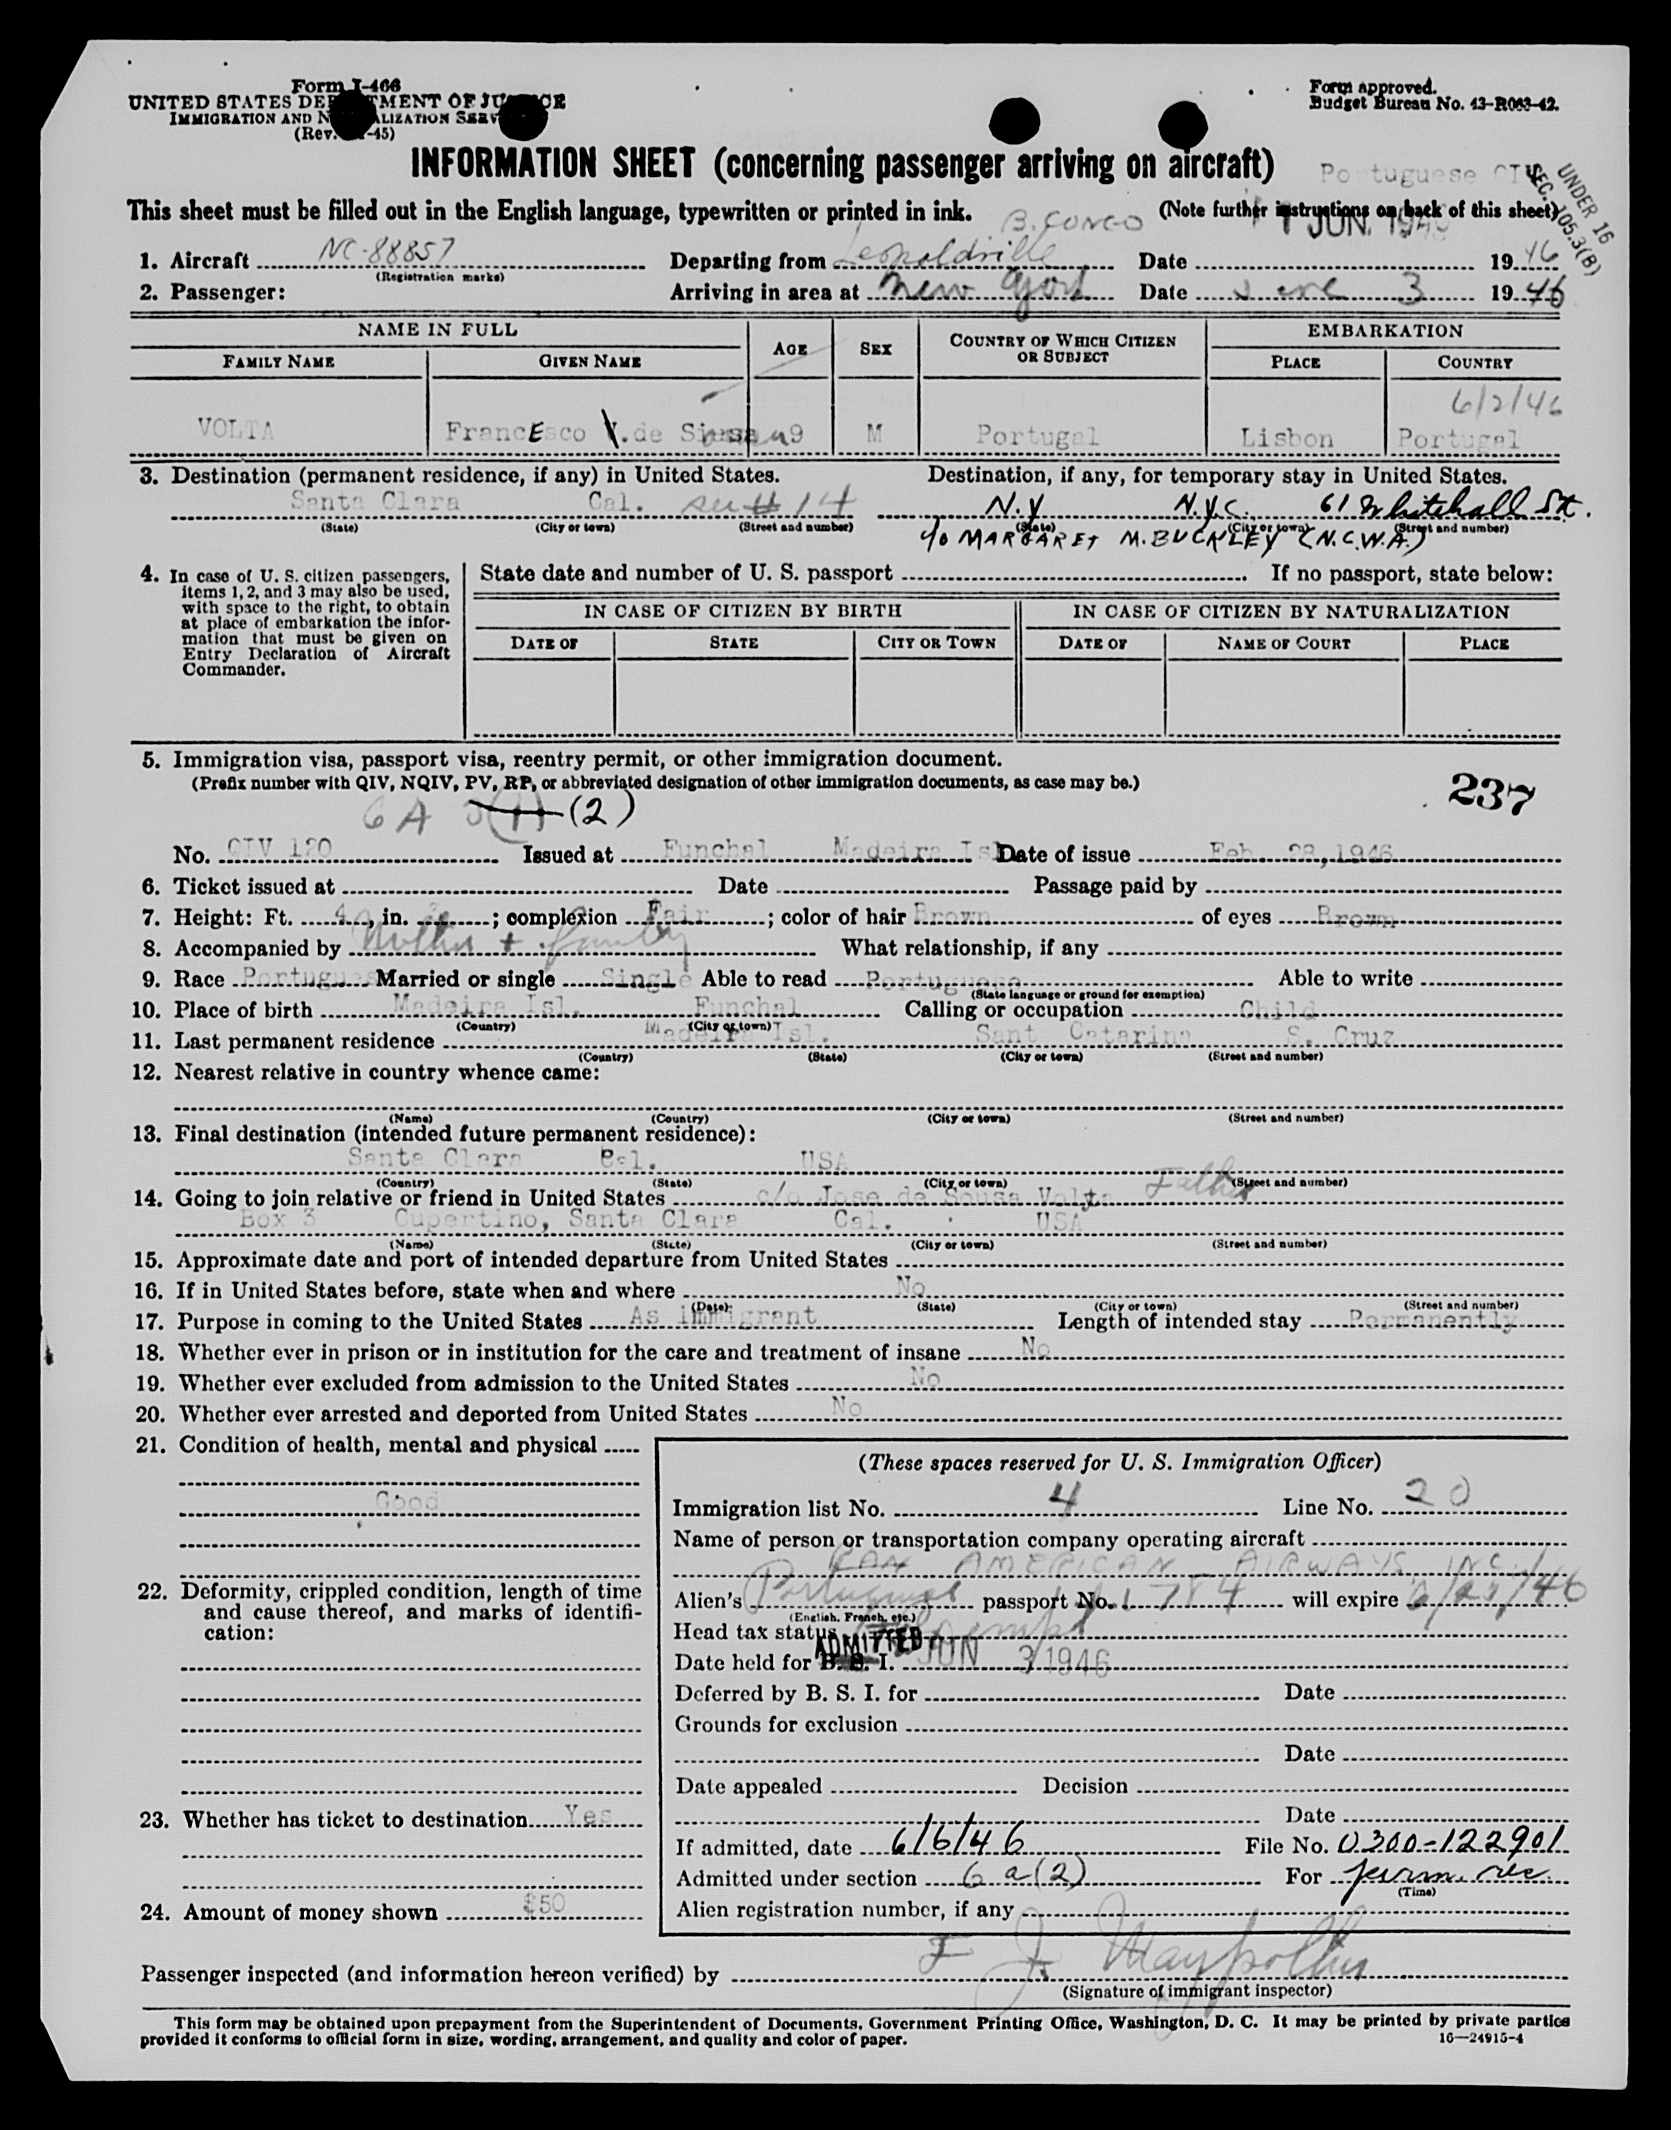 Form I-466
UNITED STATES DEPARTMENT OF JUSTICE
IMMIGRATION AND NATURALIZATION SERVICE
(Rev. -45)
Form approved.
Budget Bureau No. 43-R063-42.
INFORMATION SHEET (concerning passenger arriving on aircraft)
Portuguese
UNDER 16
SEC. 105.3(B)
This sheet must be filled out in the English language, typewritten or printed in ink. (Note further instructions on back of this sheet)
B. CONGO
1 JUN. 1946
1. Aircraft NC-88857 Departing from Leopoldville Date 1946
(Registration marks)
2. Passenger: Arriving in area at New York Date June 3 1946
NAME IN FULL AGE SEX COUNTRY OF WHICH CITIZEN OR SUBJECT EMBARKATION
FAMILY NAME GIVEN NAME PLACE COUNTRY
6/2/46
VOLTA FrancEsco V.de Sousa 9 M Portugal Lisbon Portugal
3. Destination (permanent residence, if any) in United States. Destination, if any, for temporary stay in United States.
Santa Clara Cal. see # 14 N.Y N.Y.C. 61 Whitehall St.
(State) (City or town) (Street and number) (State) (City or town) (Street and number)
c/o MARGARET M. BUCKLEY (N.C.W.A.)
4. In case of U. S. citizen passengers, items 1, 2, and 3 may also be used, with space to the right, to obtain at place of embarkation the information that must be given on Entry Declaration of Aircraft Commander.
State date and number of U. S. passport . If no passport, state below:
IN CASE OF CITIZEN BY BIRTH IN CASE OF CITIZEN BY NATURALIZATION
DATE OF STATE CITY OR TOWN DATE OF NAME OF COURT PLACE
5. Immigration visa, passport visa, reentry permit, or other immigration document.
(Prefix number with QIV, NQIV, PV, RP, or abbreviated designation of other immigration documents, as case may be.)
237
6 A (2)
No. QIV 120 Issued at Funchal Madeira Isl Date of issue Feb. 28,1946
6. Ticket issued at Date Passage paid by
7. Height: Ft. 4, in. ; complexion Fair ; color of hair Brown of eyes Brown
8. Accompanied by Mother + family What relationship, if any
9. Race Portugues Married or single Single Able to read Portuguese Able to write
(State language or ground for exemption)
10. Place of birth Madeira Isl. Funchal Calling or occupation Child
(Country) (City or town)
11. Last permanent residence Madeira Isl. Sant Catarina S. Cruz
(Country) (State) (City or town) (Street and number)
12. Nearest relative in country whence came:
(Name) (Country) (City or town) (Street and number)
13. Final destination (intended future permanent residence):
Santa Clara Cal. USA
(Country) (State) (City or town) (Street and number)
14. Going to join relative or friend in United States c/o Jose de Sousa Volta Father
Box 3 Cupertino, Santa Clara Cal. USA
(Name) (State) (City or town) (Street and number)
15. Approximate date and port of intended departure from United States
16. If in United States before, state when and where No
(Date) (State) (City or town) (Street and number)
17. Purpose in coming to the United States As immigrant Length of intended stay Permanently
18. Whether ever in prison or in institution for the care and treatment of insane No
19. Whether ever excluded from admission to the United States No
20. Whether ever arrested and deported from United States No
21. Condition of health, mental and physical
Good
22. Deformity, crippled condition, length of time and cause thereof, and marks of identification:
23. Whether has ticket to destination Yes
24. Amount of money shown $50
(These spaces reserved for U. S. Immigration Officer)
Immigration list No. 4 Line No. 20
Name of person or transportation company operating aircraft
PAN AMERICAN AIRWAYS INC.
Alien's Portuguese passport No. 1784 will expire
(English, French, etc.)
Head tax status Exempt
ADMITTED JUN 3 1946
Date held for B. S. I.
Deferred by B. S. I. for Date
Grounds for exclusion
Date
Date appealed Decision
Date
If admitted, date 6/6/46 File No. 0300-122901
Admitted under section 6 a(2) For perm. res.
(Time)
Alien registration number, if any
Passenger inspected (and information hereon verified) by
(Signature of immigrant inspector)
This form may be obtained upon prepayment from the Superintendent of Documents, Government Printing Office, Washington, D. C. It may be printed by private parties
provided it conforms to official form in size, wording, arrangement, and quality and color of paper. 16—24915-4